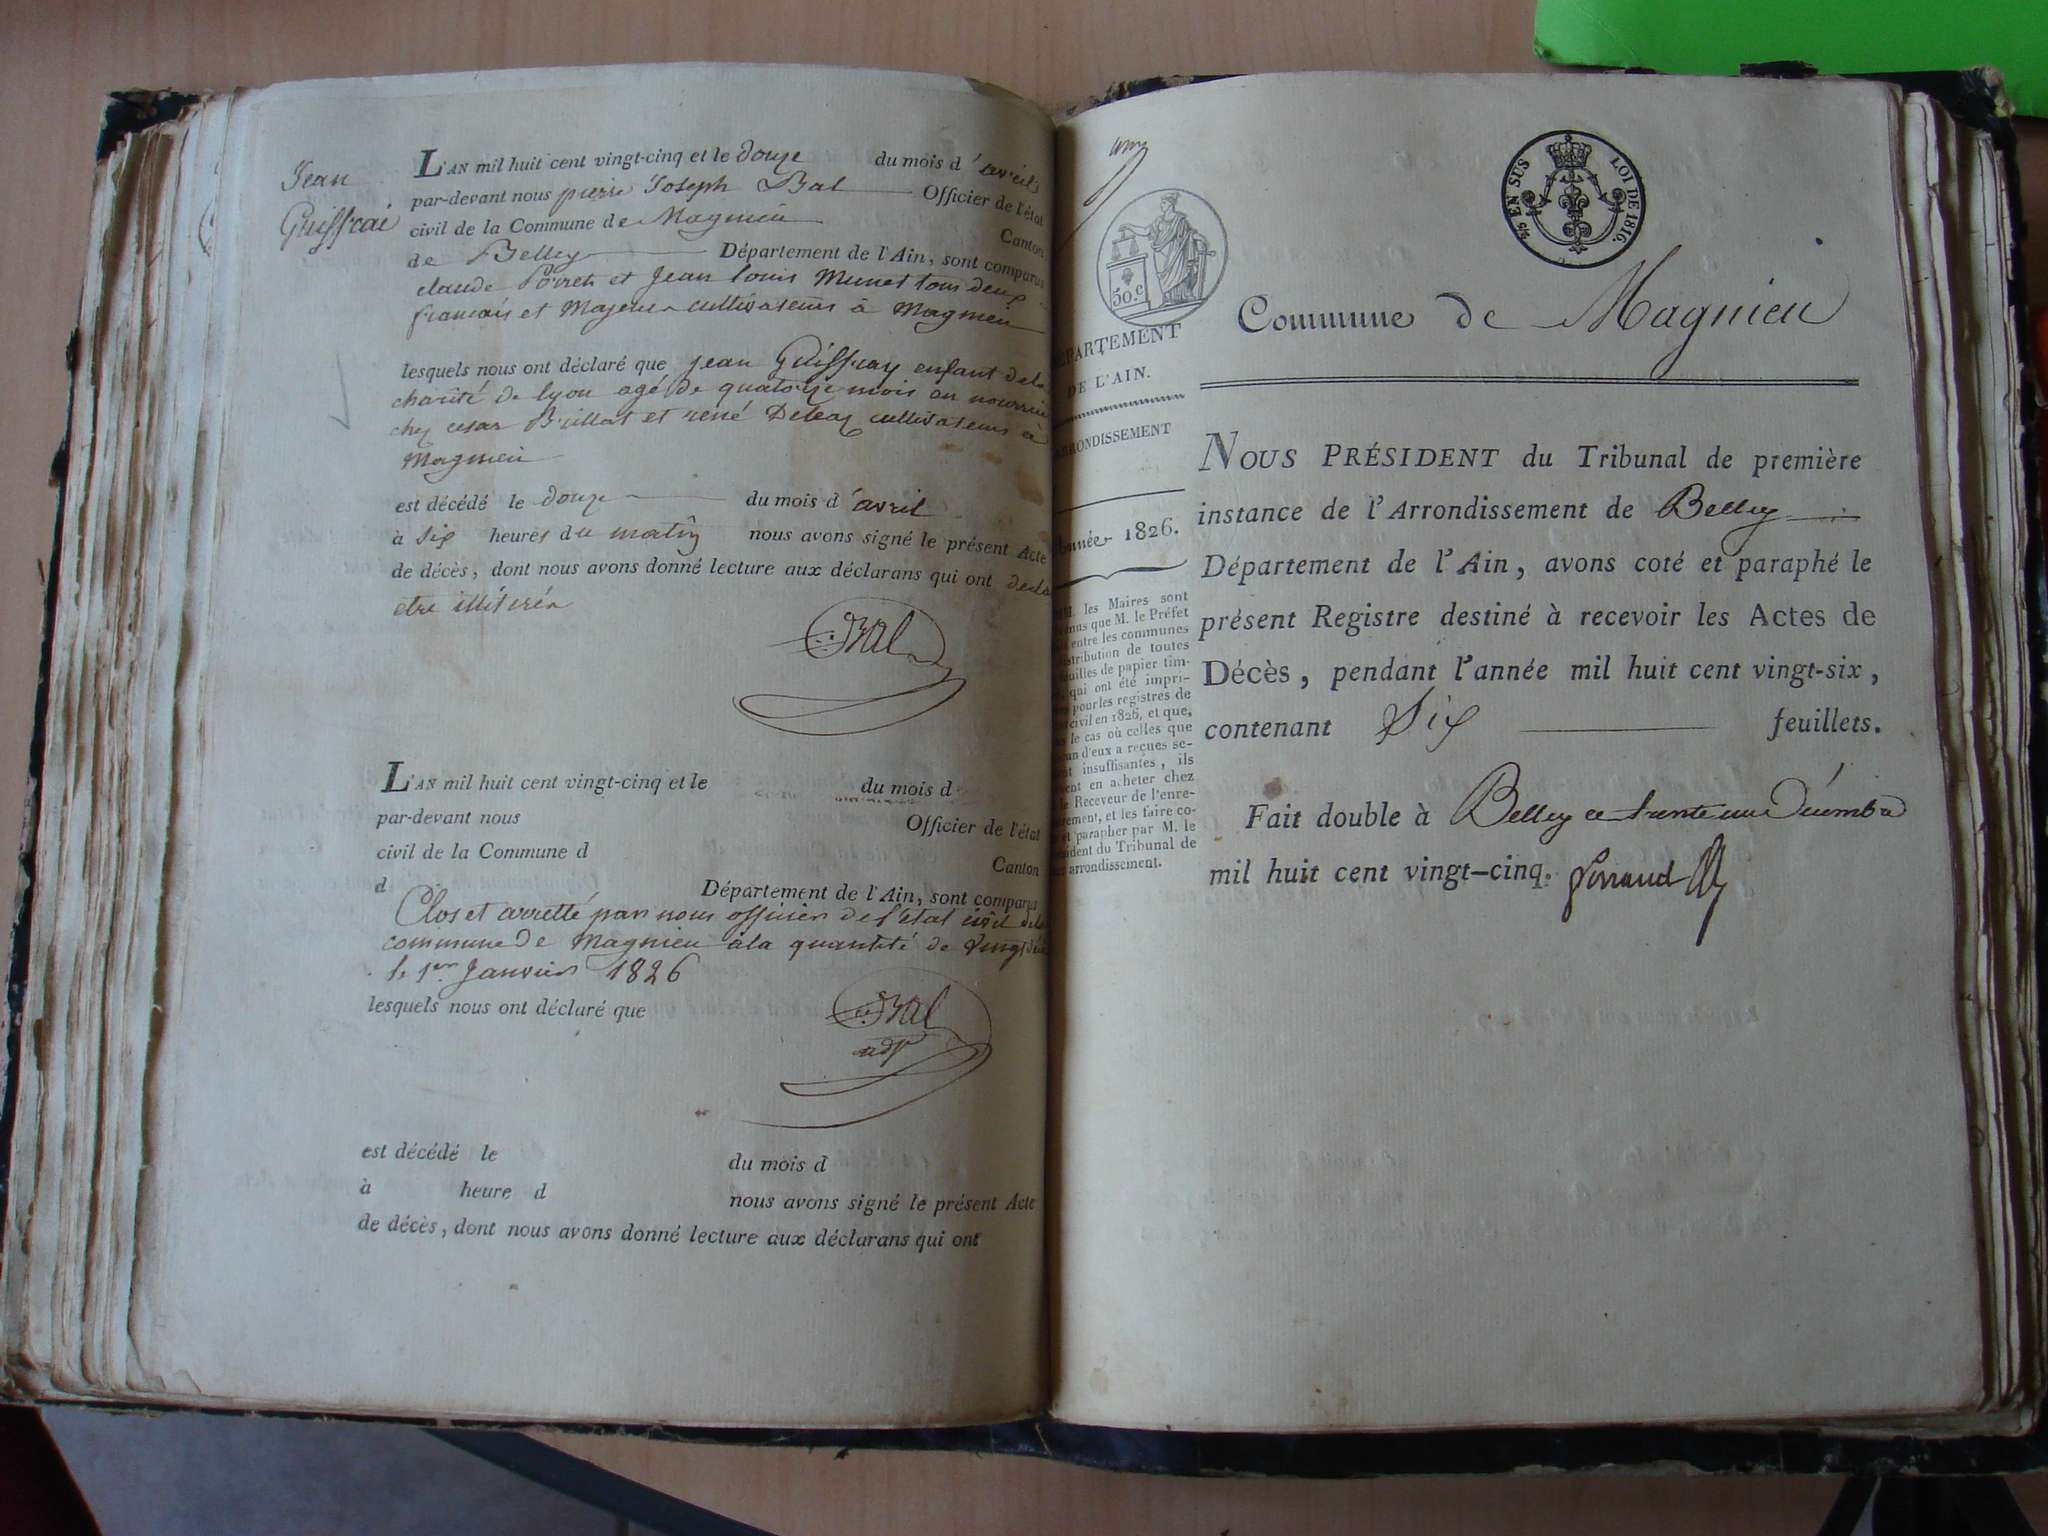 Jean
Guiffrai
L'AN mil huit cent vingt-cinq et le douze du mois d'avril
par-devant nous pierre Joseph Bal Officier de l'état
civil de la Commune de Magnieu Canton
de Belley Département de l'Ain, sont comparus
claude et Jean louis Munet tous deux
francais et Majeurs cultivateurs à Magnieu
lesquels nous ont déclaré que jean Guiffray enfant de la
charité de lyon agé de quatorze mois en nourrice
chez cesar Billat et rené cultivateurs à
Magnieu
est décédé le douze du mois d'avril
à six heures du matin nous avons signé le présent Acte
de décès, dont nous avons donné lecture aux déclarans qui ont
etre illiterés
Bal
L'AN mil huit cent vingt-cinq et le du mois d
par-devant nous Officier de l'état
civil de la Commune d Canton
d Département de l'Ain, sont comparus
Clos et arretté par nous officier de l'état civil de la
commune de Magnieu à la quantité de
le 1er Janvier 1826
lesquels nous ont déclaré que
Bal
adj
est décédé le du mois d
à heure d nous avons signé le présent Acte
de décès, dont nous avons donné lecture aux déclarans qui ont
50.c
DÉPARTEMENT
DE L'AIN.
ARRONDISSEMENT
Année 1826.
M. les Maires sont
que M. le Préfet
entre les communes
distribution de toutes
feuilles de papier tim-
qui ont été impri-
pour les registres de
civil en 1826, et que,
le cas où celles que
d'eux a reçues se-
insuffisantes, ils
en acheter chez
le Receveur de l'enre-
et les faire co-
et parapher par M. le
Président du Tribunal de
arrondissement.
EN SUS LOI DE 1816.
Commune de Magnieu
NOUS PRÉSIDENT du Tribunal de première
instance de l'Arrondissement de Belley
Département de l'Ain, avons coté et paraphé le
présent Registre destiné à recevoir les Actes de
Décès, pendant l'année mil huit cent vingt-six,
contenant Six feuillets.
Fait double à Belley ce trente un Décembre
mil huit cent vingt-cinq.